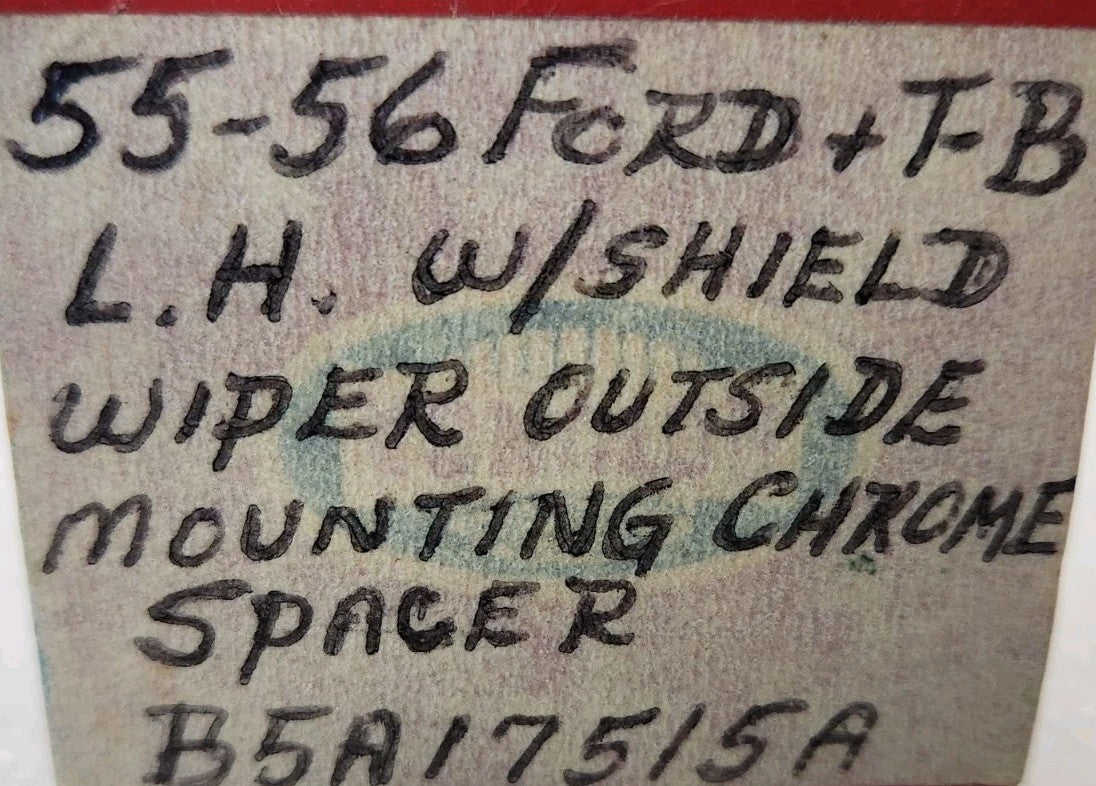 55-56 FORD + T-B
L.H. W/SHIELD
WIPER OUTSIDE
MOUNTING CHROME
SPACER
B5A17515A